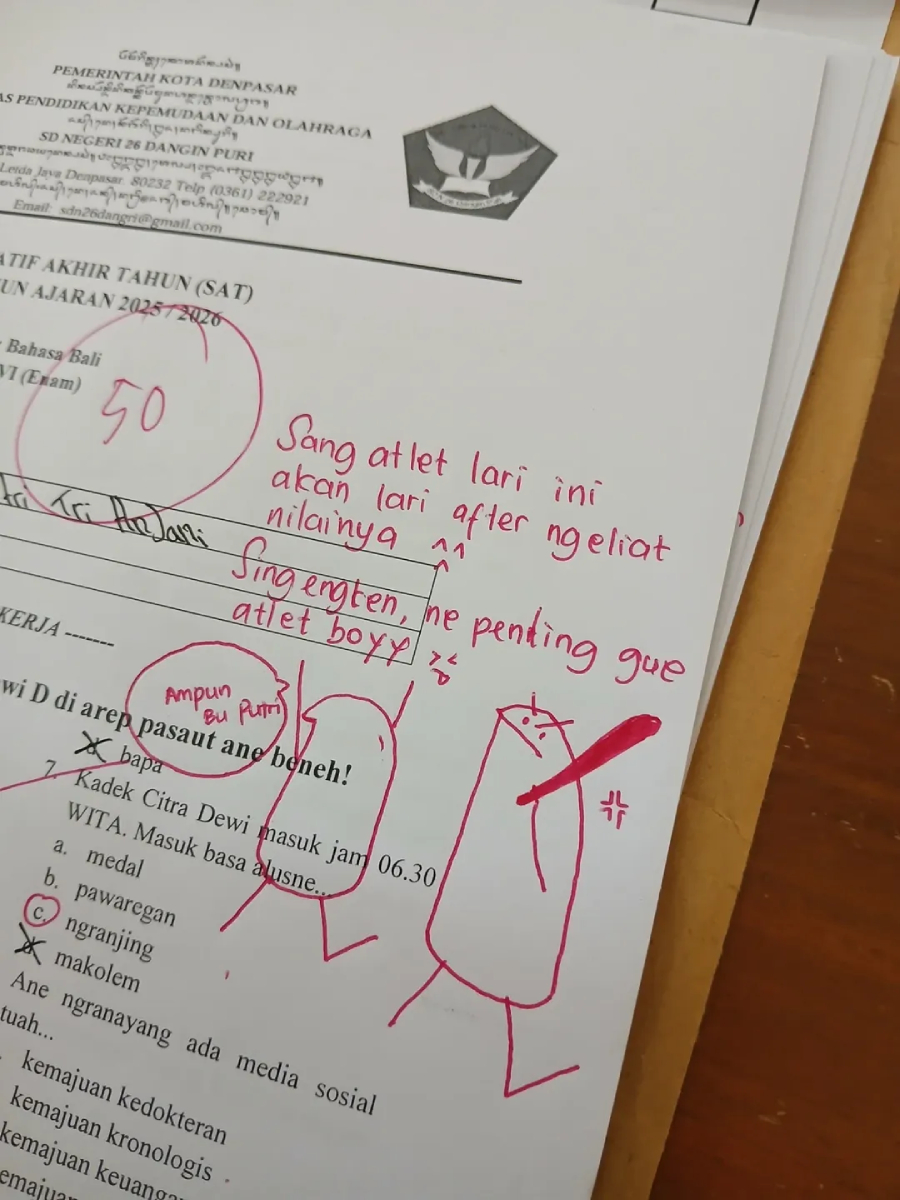 PEMERINTAH KOTA DENPASAR
AS PENDIDIKAN KEPEMUDAAN DAN OLAHRAGA
SD NEGERI 26 DANGIN PURI
Leida Jaya Denpasar. 80232 Telp (0361) 222921
Email: sdn26dangri@gmail.com
ATIF AKHIR TAHUN (SAT)
UN AJARAN 2025 / 2026
: Bahasa Bali
VI (Enam)
50
Sang atlet lari ini
akan lari after ngeliat
nilainya ^^
Tri AnJani
Sing engken, ne penting gue
atlet boyy ><
KERJA -------
Ampun
Bu Putri
wi D di arep pasaut ane beneh!
bapa
7. Kadek Citra Dewi masuk jam 06.30
WITA. Masuk basa alusne...
a. medal
b. pawaregan
c. ngranjing
makolem
Ane ngranayang ada media sosial
tuah...
kemajuan kedokteran
kemajuan kronologis
kemajuan keuanga
emajua